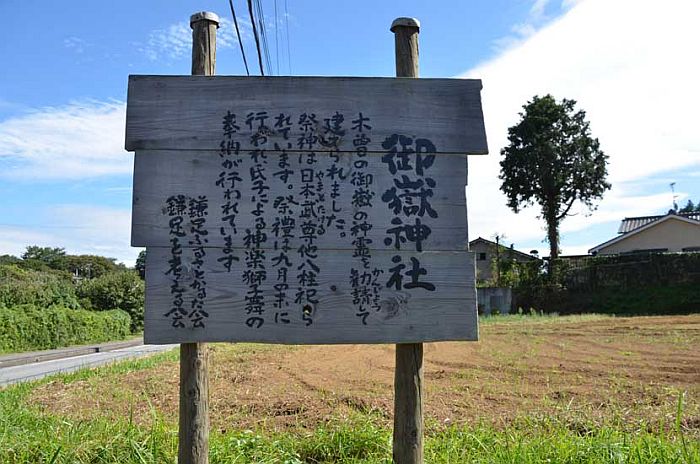 御嶽神社
木曽の御嶽の神霊を勧請して
かんじょう
建てられました。
祭神は日本武尊他八柱祀ら
やまとたける
れています。祭禮は九月末に
行われ氏子による神楽獅子舞の
奉納が行われています
鎌足ふるさとかるた公
鎌足を考える会